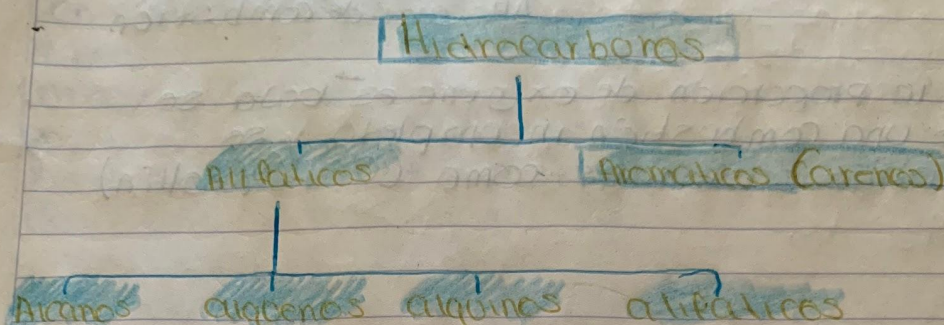 Hidrocarboros
Alifaticos Aromaticos (arenos)
Alcanos alquenos alquinos alifaticos